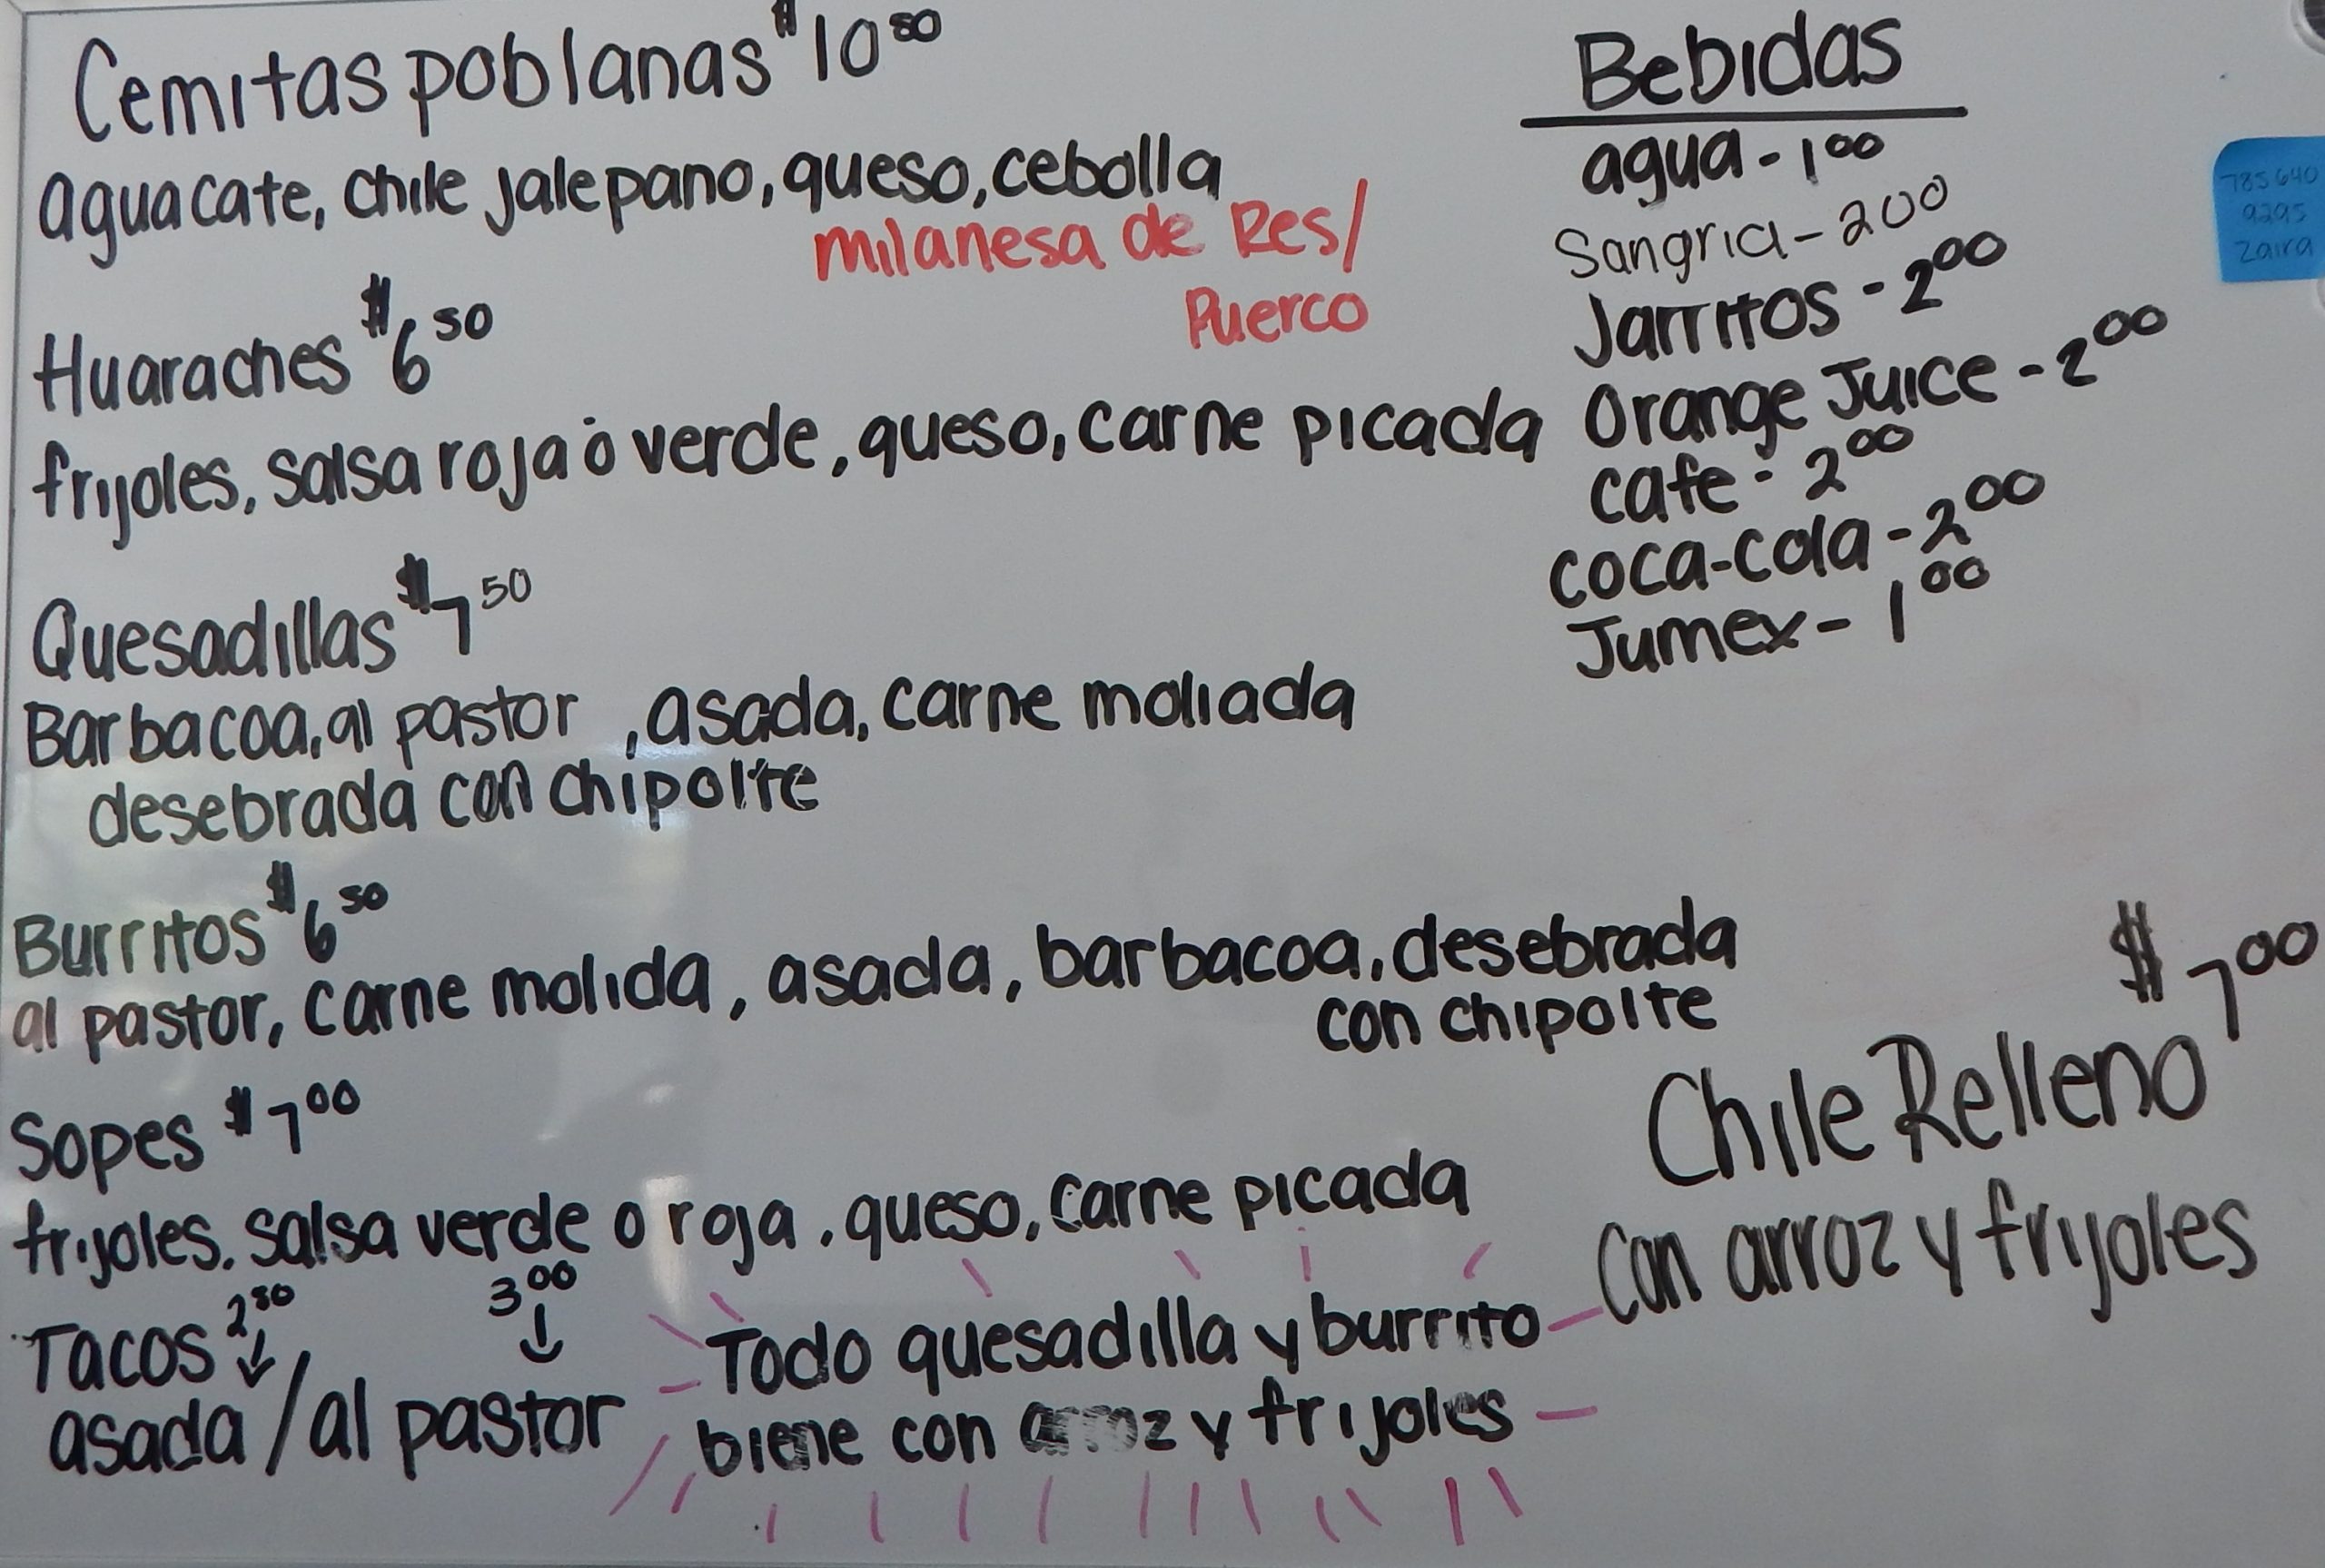 Cemitas poblanas $10 50
aguacate, chile jalepano, queso, cebolla
milanesa de Res/
Puerco
Huaraches $6 50
frijoles, salsa roja ó verde, queso, carne picada
Quesadillas $7 50
Barbacoa, al pastor , asada, carne moliada
desebrada con chipolte
Burritos $6 50
al pastor, carne molida, asada, barbacoa, desebrada
con chipolte
Sopes $7 00
frijoles, salsa verde o roja, queso, carne picada
2 50 3 00
Tacos
asada / al pastor
Todo quesadilla y burrito
biene con arroz y frijoles
Bebidas
agua - 1 00
Sangria - 2 00
Jarritos - 2 00
Orange Juice - 2 00
cafe - 2 00
coca-cola - 2 00
Jumex - 1 00
$7 00
Chile Relleno
con arroz y frijoles
785 640
9295
Zaira